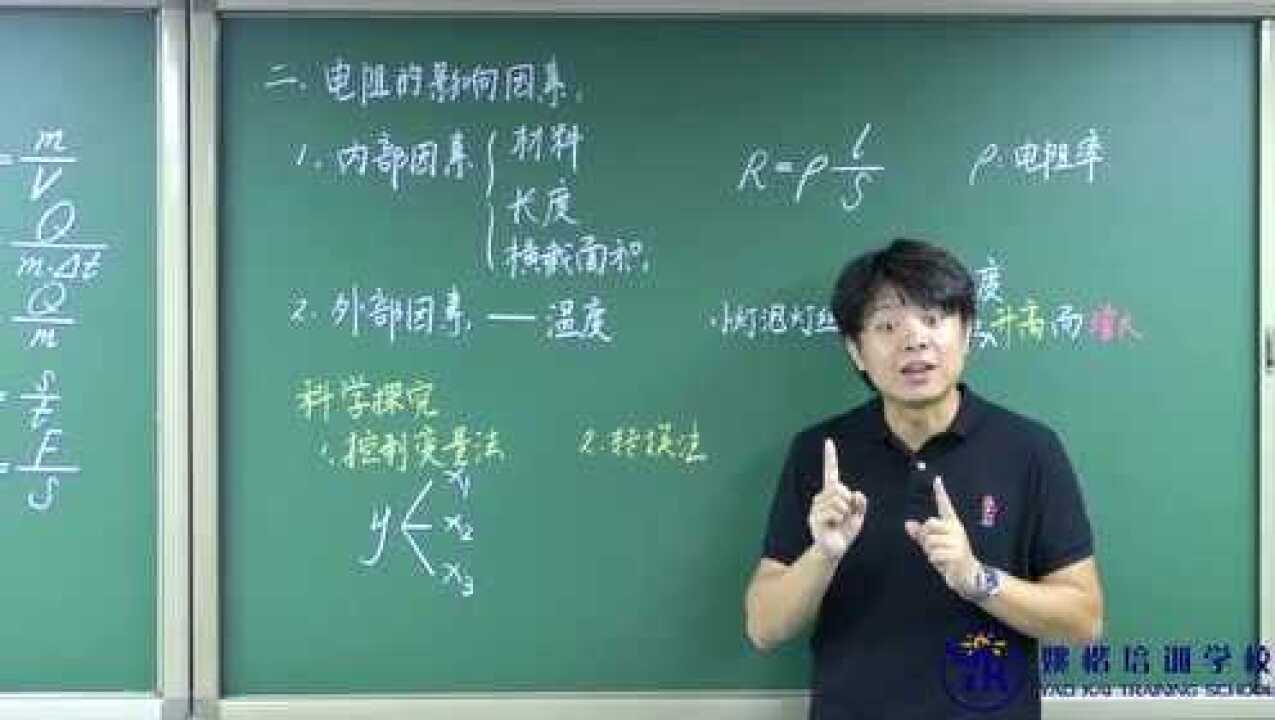 = m/V
Q/m·Δt
Q/m
= s/t
= F/S
二、电阻的影响因素。
1、内部因素 { 材料
长度
横截面积。
R=ρ l/S ρ:电阻率
2、外部因素 — 温度
小灯泡灯丝
度
升高而增大
科学探究
1、控制变量法 2、转换法
y x₁
x₂
x₃
培训学校
TRAINING SCHOOL